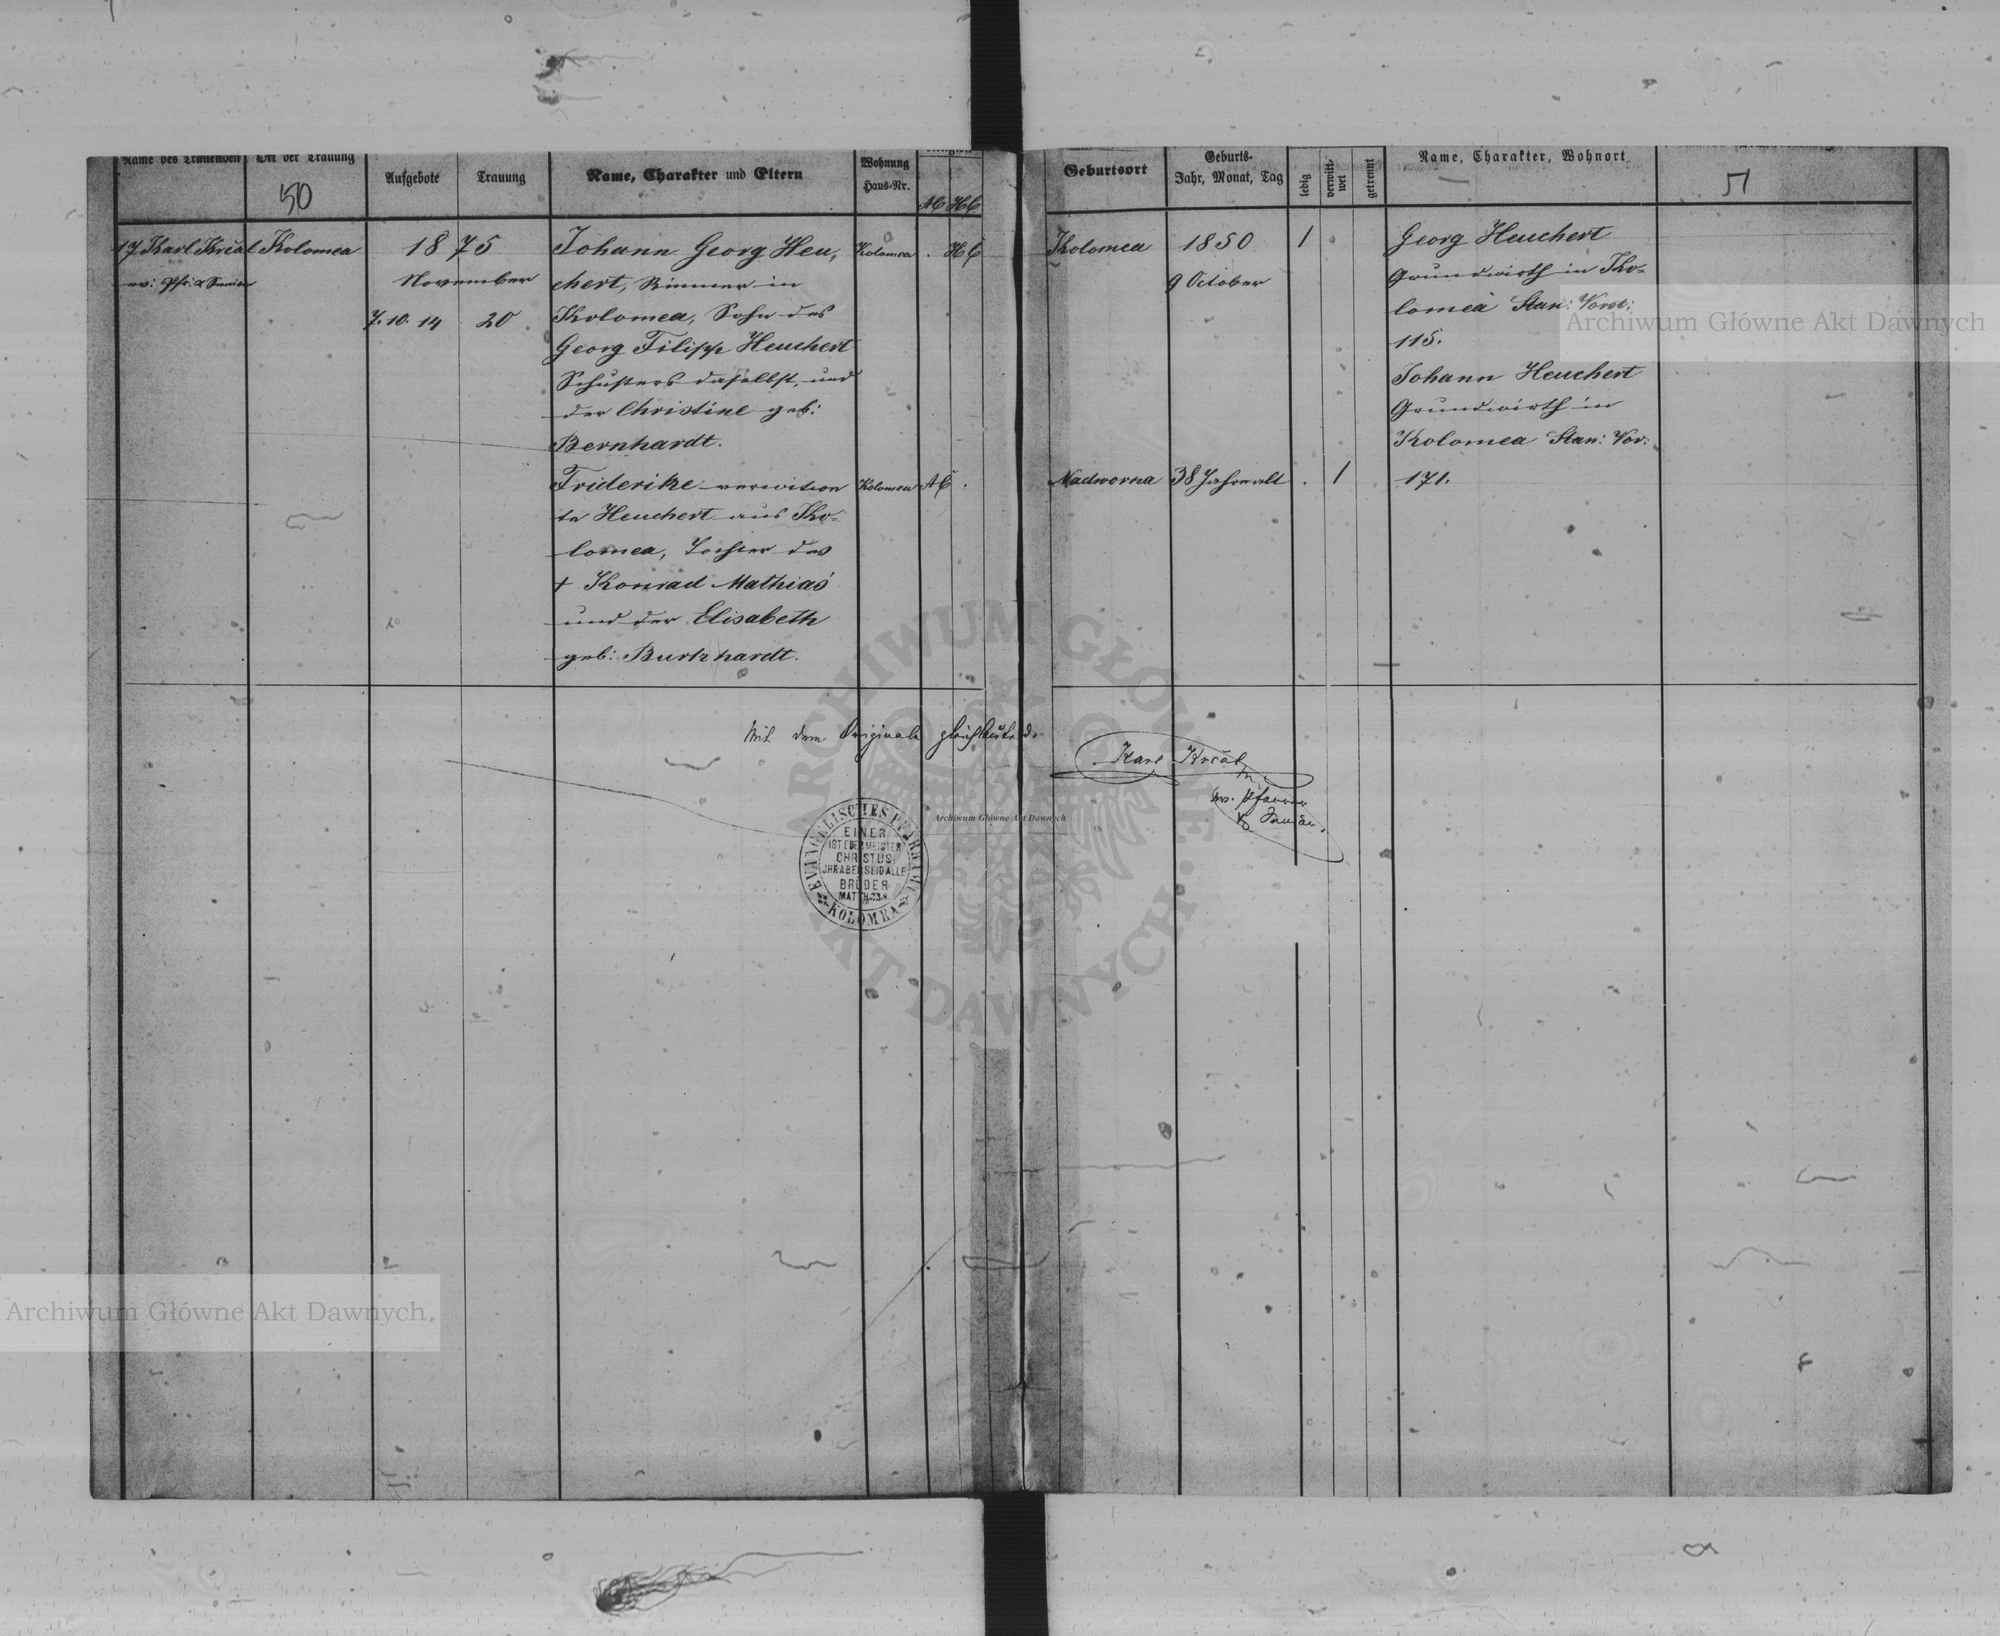 Name des Trauenden
Ort der Trauung
50
Aufgebote
Trauung
Name, Charakter und Eltern
Wohnung
Haus-Nr.
AC HC
Geburtsort
Geburts-
Jahr, Monat, Tag
ledig
verwitt-
wet
getrennt
Name, Charakter, Wohnort
51
17 Karl Král
ev: Pfr: & Senior
Kolomea
1875
November
7. 10. 14
20
Johann Georg Heu,
chert, Riemer in
Kolomea, Sohn des
Georg Filipp Heuchert
Schusters daselbst, und
der Christine geb:
Bernhardt.
Kolomea
. HC
Kolomea
1850
9 October
1
.
Georg Heuchert
Grundwirth in Ko-
lomea Stan: Vorst:
115.
Johann Heuchert
Grundwirth in
Kolomea Stan: Vor:
171.
Friderike verwitwe
te Heuchert aus Ko-
lomea, Tochter des
+ Konrad Mathias
und der Elisabeth
geb: Burkhardt.
Kolomea
AC .
Nadworna
38 Jahre alt
. 1
Mit dem Originale gleichlautend.
Karl Král
ev. Pfarrer
& Senior.
EVANGELISCHES PFARRAMT
KOLOMEA
EINER
IST EUER MEISTER
CHRISTUS
IHR ABER SEID ALLE
BRÜDER
MATTH.23.8.
Archiwum Główne Akt Dawnych
Archiwum Główne Akt Dawnych
Archiwum Główne Akt Dawnych
ARCHIWUM GŁÓWNE AKT DAWNYCH